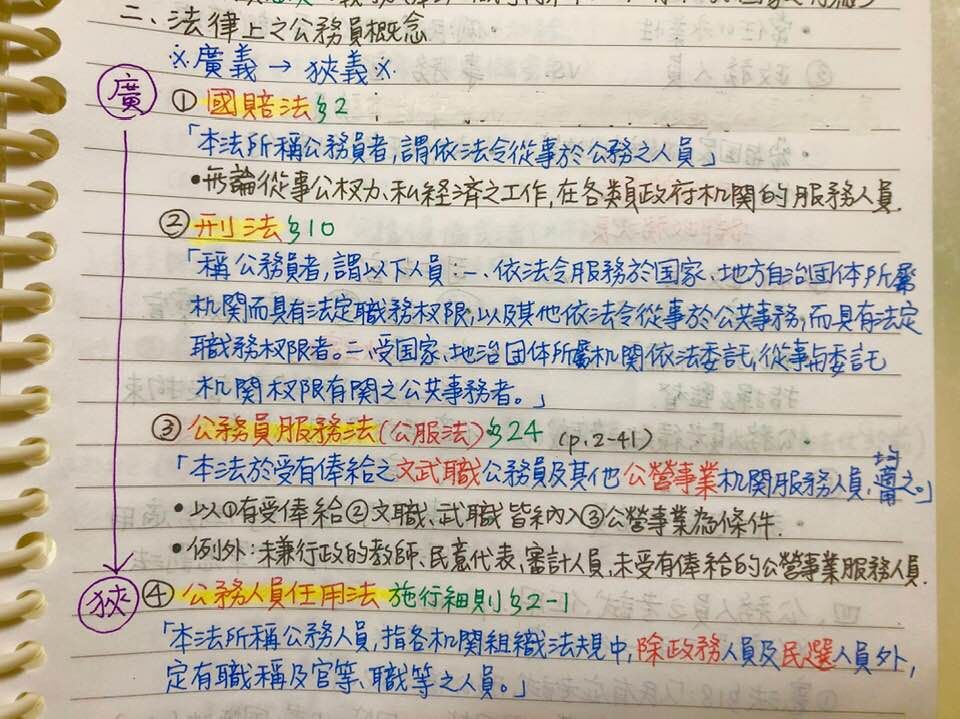 二、法律上之公務員概念
※廣義→狹義※
廣
① 國賠法§2
「本法所稱公務員者,謂依法令從事於公務之人員」
•無論從事公权力、私經濟之工作,在各類政府机関的服務人員.
② 刑法§10
「稱公務員者,謂以下人員:一、依法令服務於国家、地方自治団体所屬
机関而具有法定職務权限,以及其他依法令從事於公共事務,而具有法定
職務权限者。二、受国家、地治団体所屬机関依法委託,從事与委託
机関权限有関之公共事務者。」
③ 公務員服務法(公服法)§24 (p.2-41)
「本法於受有俸給之文武職公務員及其他公營事業机関服務人員,均適用之。」
•以①有受俸給②文職、武職皆納入③公營事業為條件.
•例外:未兼行政的教師、民意代表、審計人員,未受有俸給的公營事業服務人員.
狹
④ 公務人員任用法 施行細則§2-1
「本法所稱公務人員,指各机関組織法規中,除政務人員及民選人員外,
定有職稱及官等、職等之人員。」